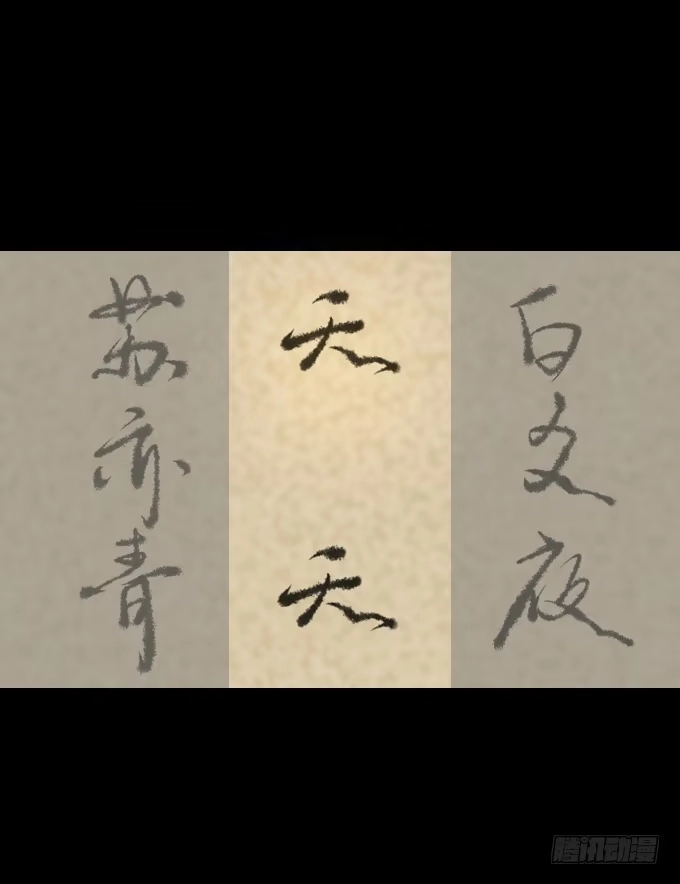 白夜
天天
苏亦青
腾讯动漫